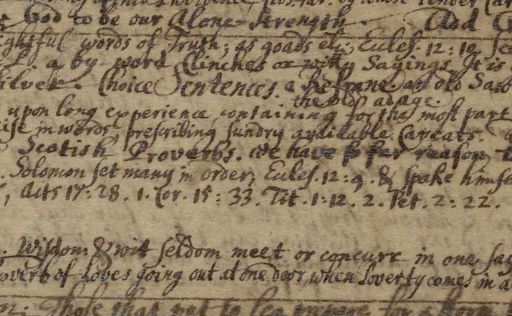 God to be our Alone-Strength. And G
ghtful words of Truth, as goads &c. Eccles. 12: 10.
a by word Clinches or witty Sayings. It is
Silver. Choice Sentences. a Refrane, an old Saw
the old adage.
upon long experience, containing for the most part
in words, prescribing sundry available Caveats.
Scotish Proverbs. We have so far reason
Solomon set many in order, Eccles. 12: 9. & spake himse
Acts 17: 28. 1. Cor. 15: 33. Tit. 1. 12. 2. Pet. 2: 22.
Wisdom & wit seldom meet or concurr in one, say
overb of Loves going out at one door, when Poverty comes in a
Those that put to Sea prepare for a storm